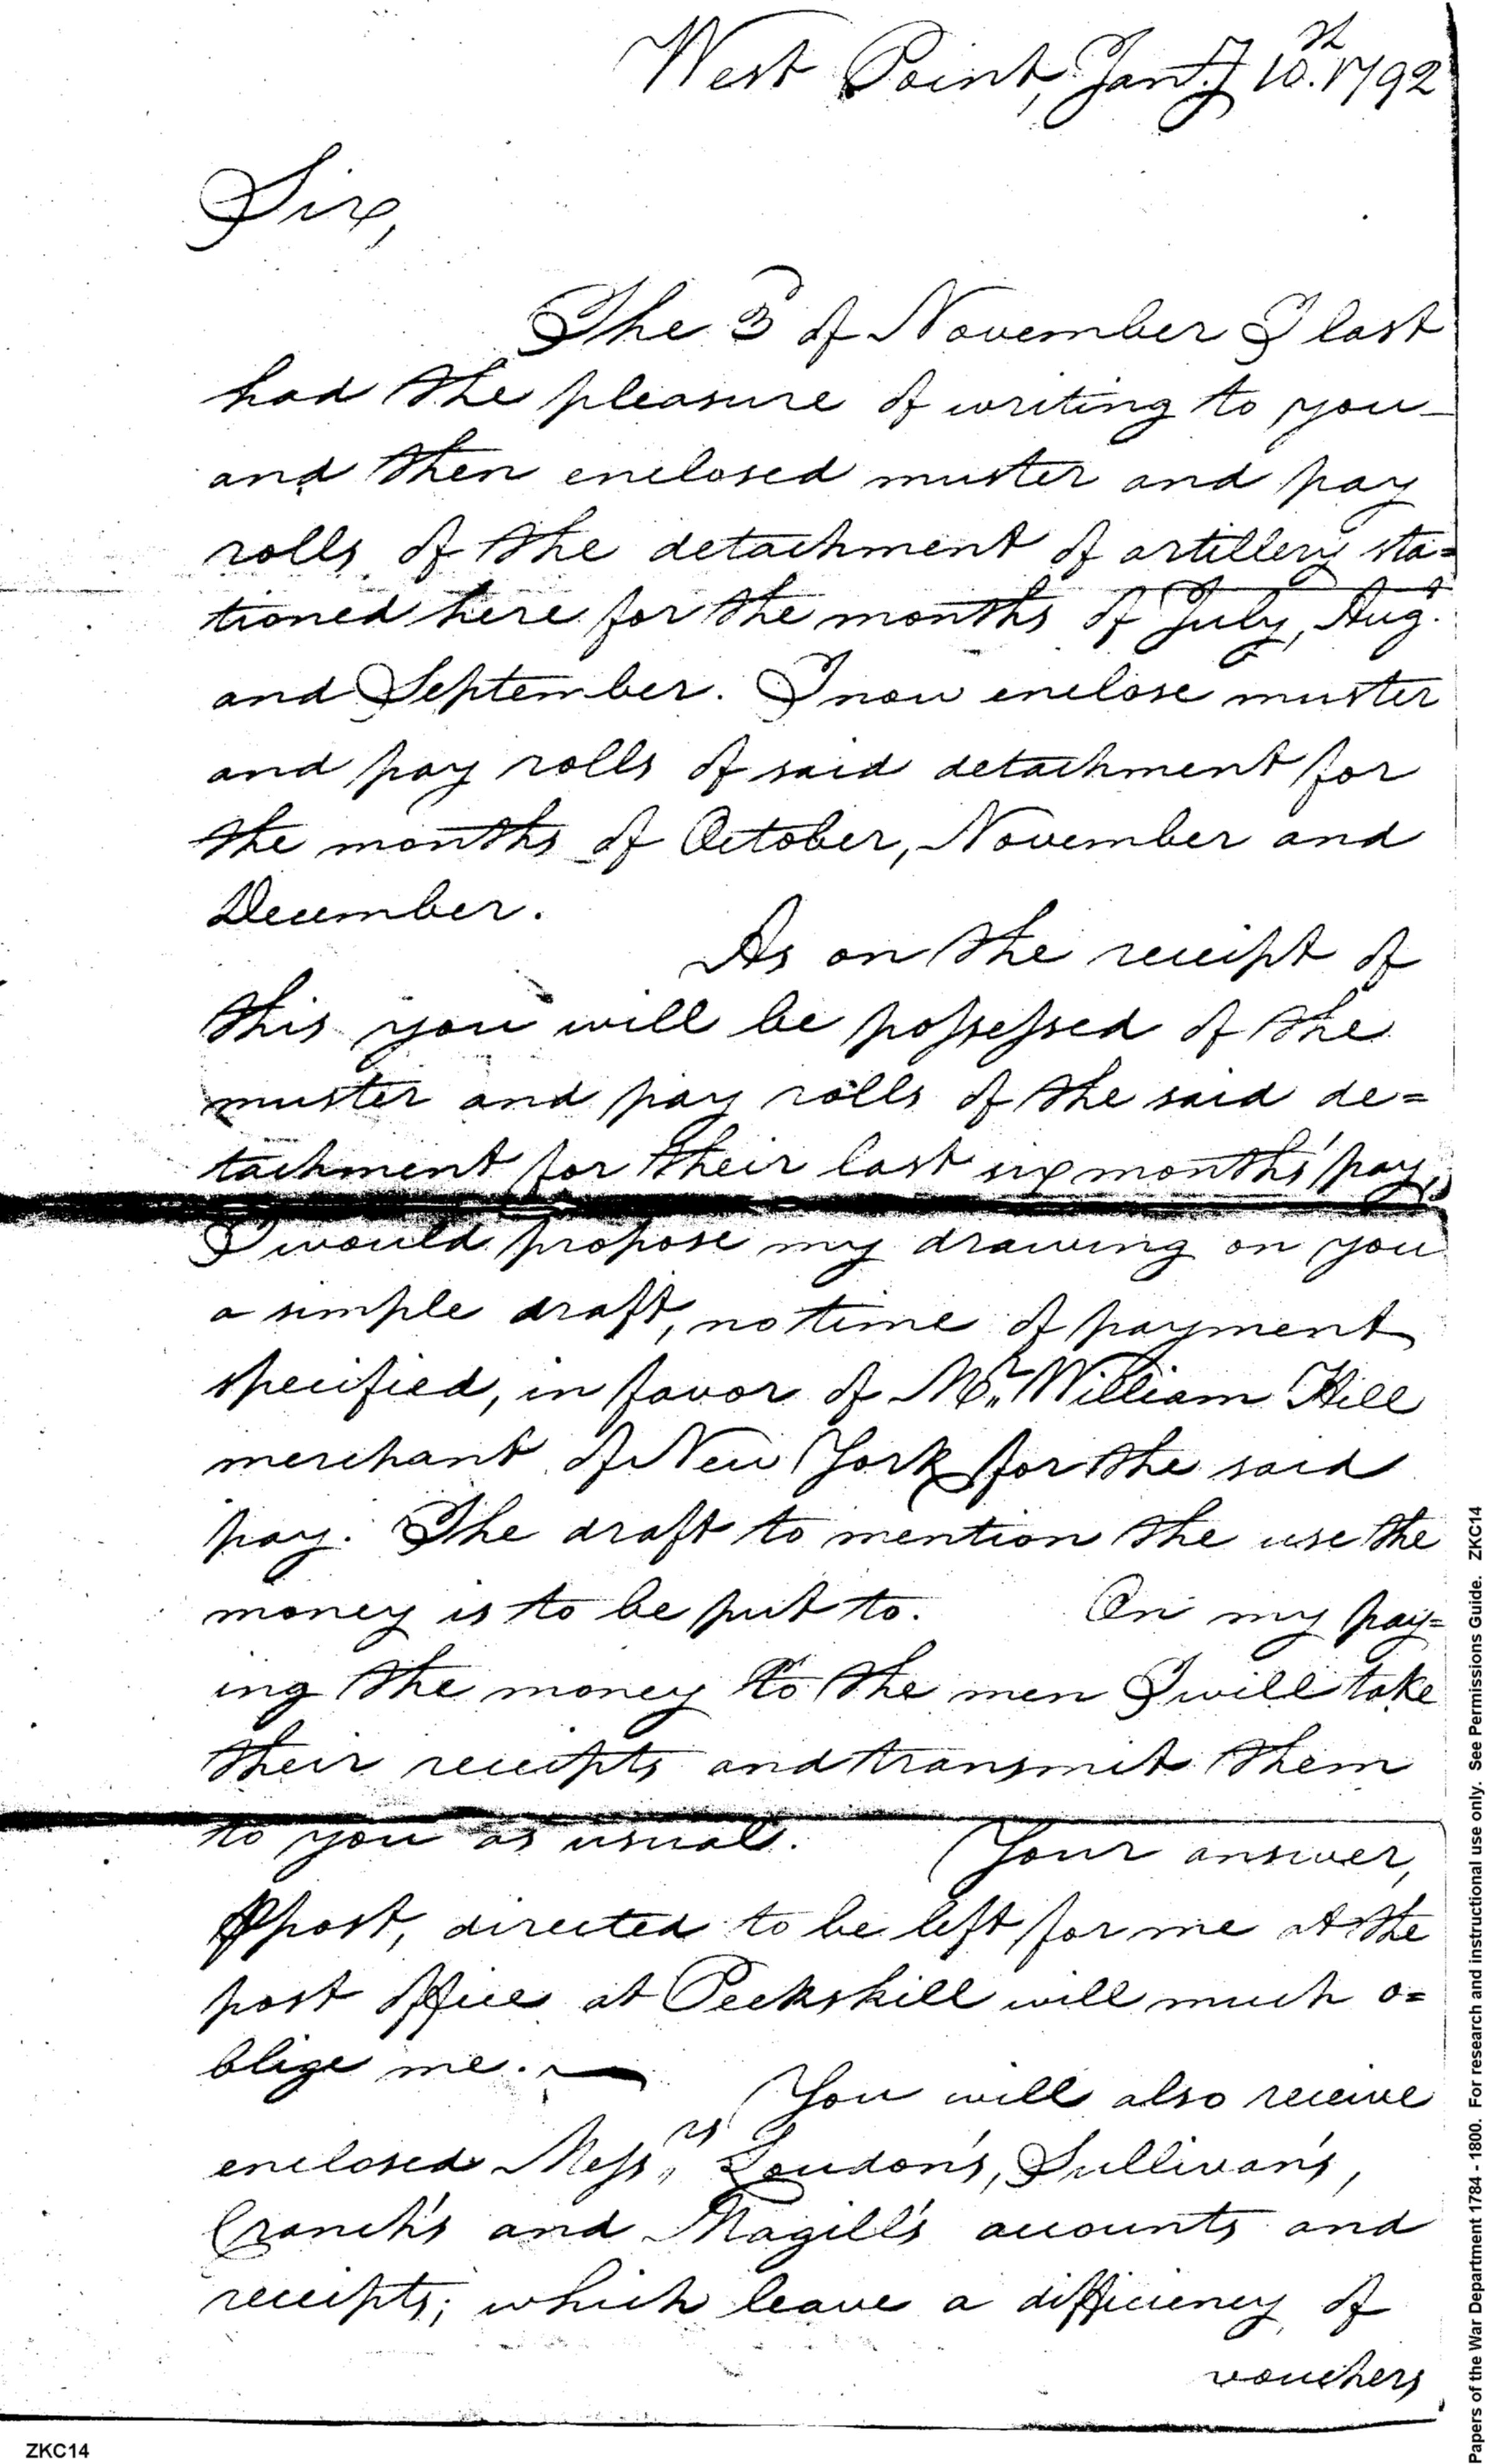 West Point, Jan.y 10.st 1792
Sir,
The 3 of November I last
had the pleasure of writing to you
and then enclosed muster and pay
rolls of the detachment of artillery sta=
tioned here for the months of July, Augt.
and September. I now enclose muster
and pay rolls of said detachment for
the months of October, November and
December.
As on the receipt of
this you will be possessed of the
muster and pay rolls of the said de=
tachment for their last six months' pay,
I would propose my drawing on you
a simple draft, no time of payment
specified, in favor of Mr. William Hill
merchant of New York for the said
pay. The draft to mention the use the
money is to be put to. On my pay=
ing the money to the men I will take
their receipts and transmit them
to you as usual. Your answer,
post, directed to be left for me at the
post office at Peekskill will much o=
blige me.
You will also receive
enclosed Messrs. Loudon's, Sullivan's,
Cranch's and Magill's accounts and
receipts; which leave a difficiency of
vouchers
ZKC14
Papers of the War Department 1784 - 1800. For research and instructional use only. See Permissions Guide. ZKC14